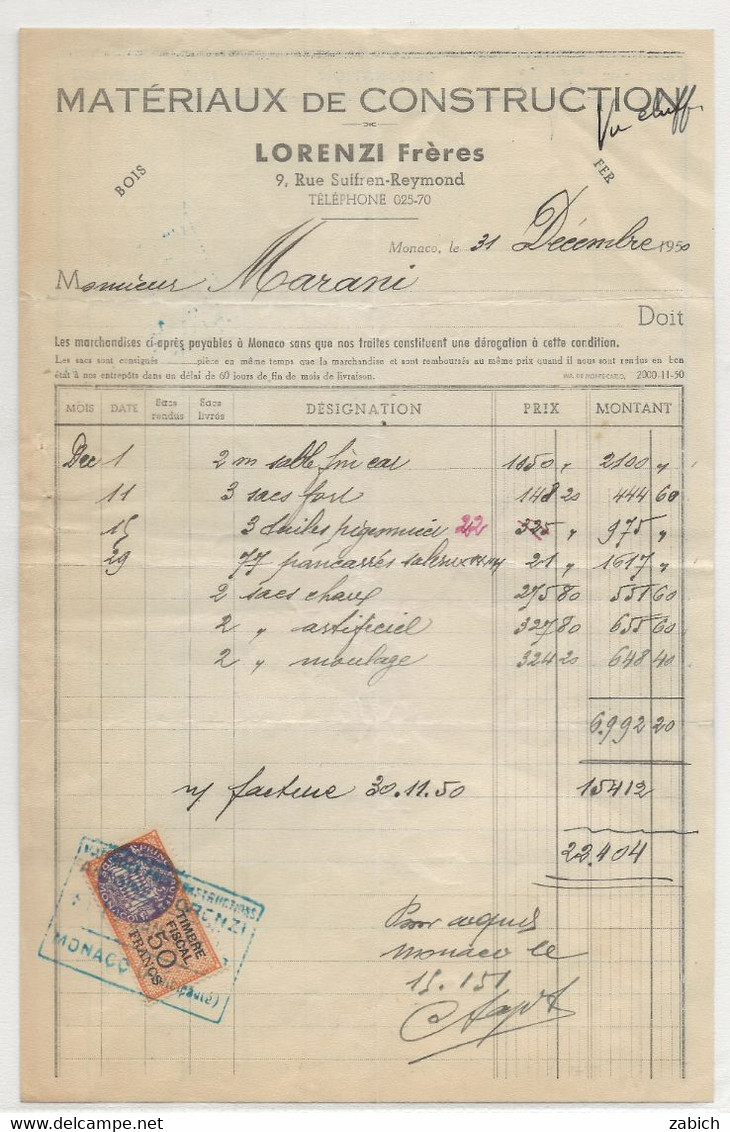 MATÉRIAUX DE CONSTRUCTION
LORENZI Frères
BOIS
FER
9, Rue Suffren-Reymond
TÉLÉPHONE 025-70
Monaco, le 31 Décembre 1950
Monsieur Marani
Doit
Les marchandises ci-après payables à Monaco sans que nos traites constituent une dérogation à cette condition.
Les sacs sont consignés pièce en même temps que la marchandise et sont remboursés au même prix quand il nous sont rendus en bon
état à nos entrepôts dans un délai de 60 jours de fin de mois de livraison. 2000-11-50
MOIS DATE Sacs rendus Sacs livrés DÉSIGNATION PRIX MONTANT
Dec 1 2 m sable fin car 1050 " 2100 "
11 3 sacs fort 148 20 444 60
15 3 22 325 " 975 "
29 77 21 " 1617 "
2 sacs chaux 275 80 551 60
2 " artificiel 327 80 655 60
2 " moulage 324 20 648 40
6.992 20
n/ facture 30.11.50 15412
22.404
Pour acquit
Monaco le
15.1 51
LORENZI
MONACO
TIMBRE
FISCAL
50
FRANCS
zabich